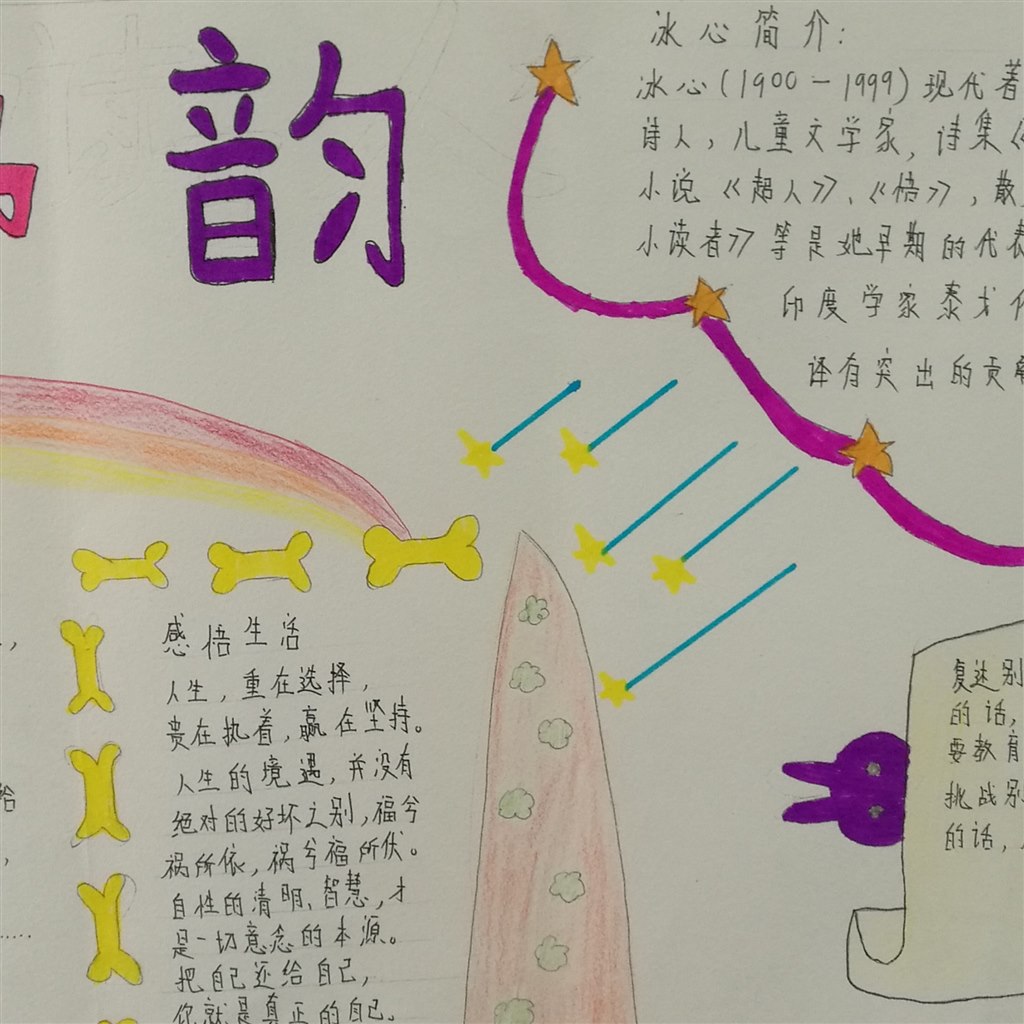 韵
冰心简介:
冰心(1900-1999)现代著
诗人,儿童文学家,诗集《
小说《超人》、《悟》,散
小读者》等是她早期的代表
印度学家泰戈
译有突出的贡献
感悟生活
人生,重在选择,
贵在执着,赢在坚持。
人生的境遇,并没有
绝对的好坏之别,福兮
祸所依,祸兮福所伏。
自性的清明、智慧,才
是一切意念的本源。
把自己还给自己,
你就是真正的自己。
给
……
复达别
的话,
要教育
挑战别
的话,